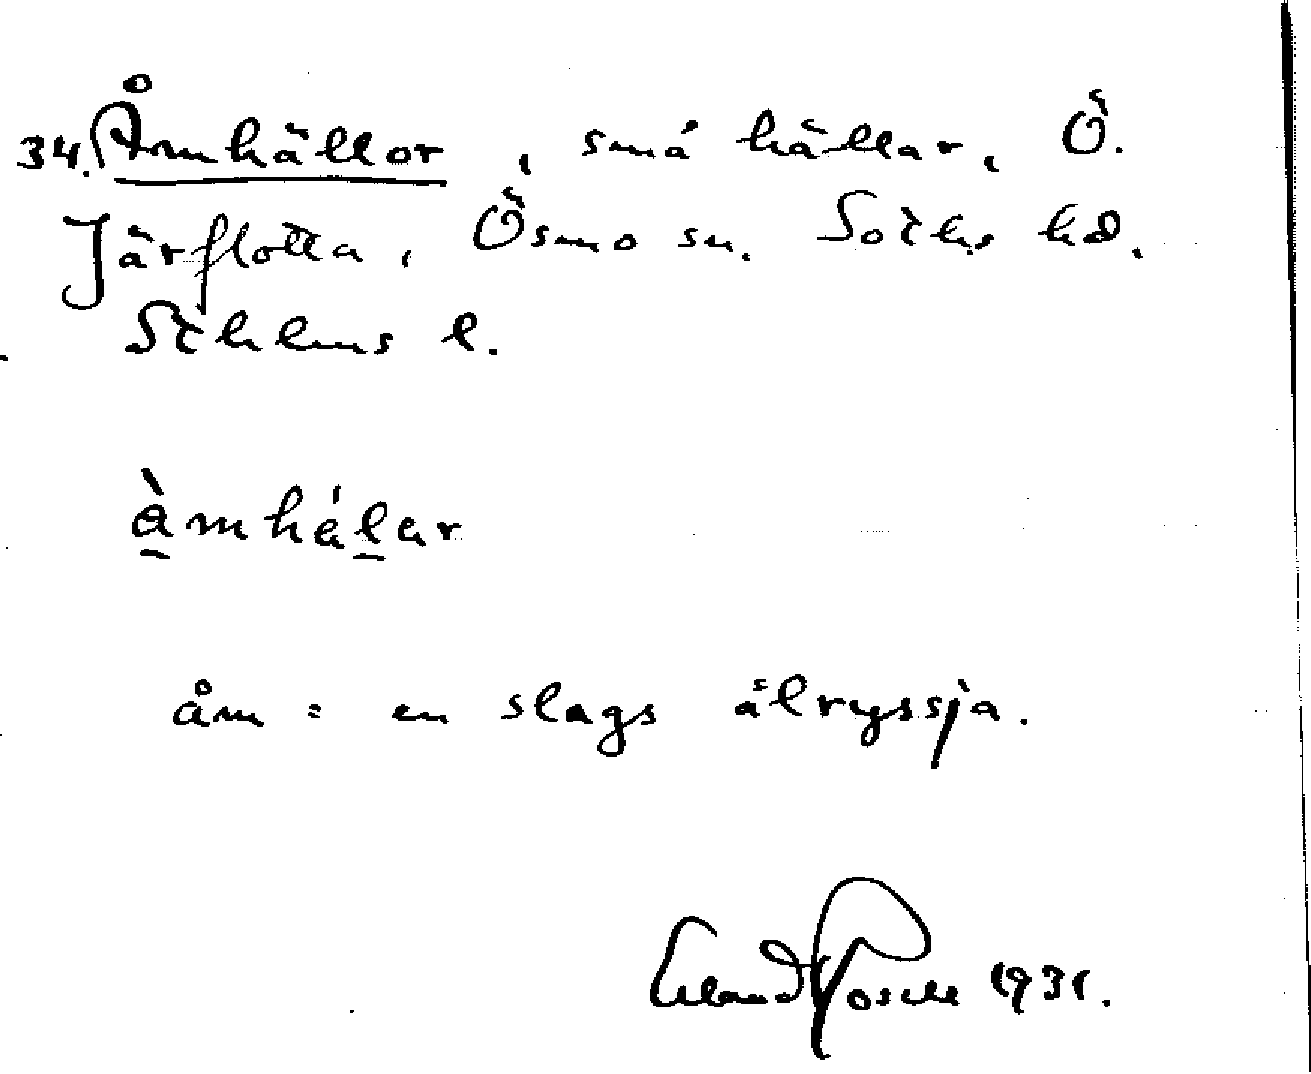 34. Åmhällor, små hällar, Ö.
Järflotta, Ösmo sn. Soth. hd.
Sthlms l.
åmhälar
åm = en slags ålryssja.
Erland Rosell 1931.